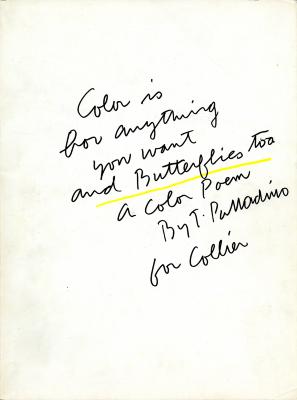 Color is
for anything
you want
and Butterflies too
a Color Poem
By T. Palladino
for Collier